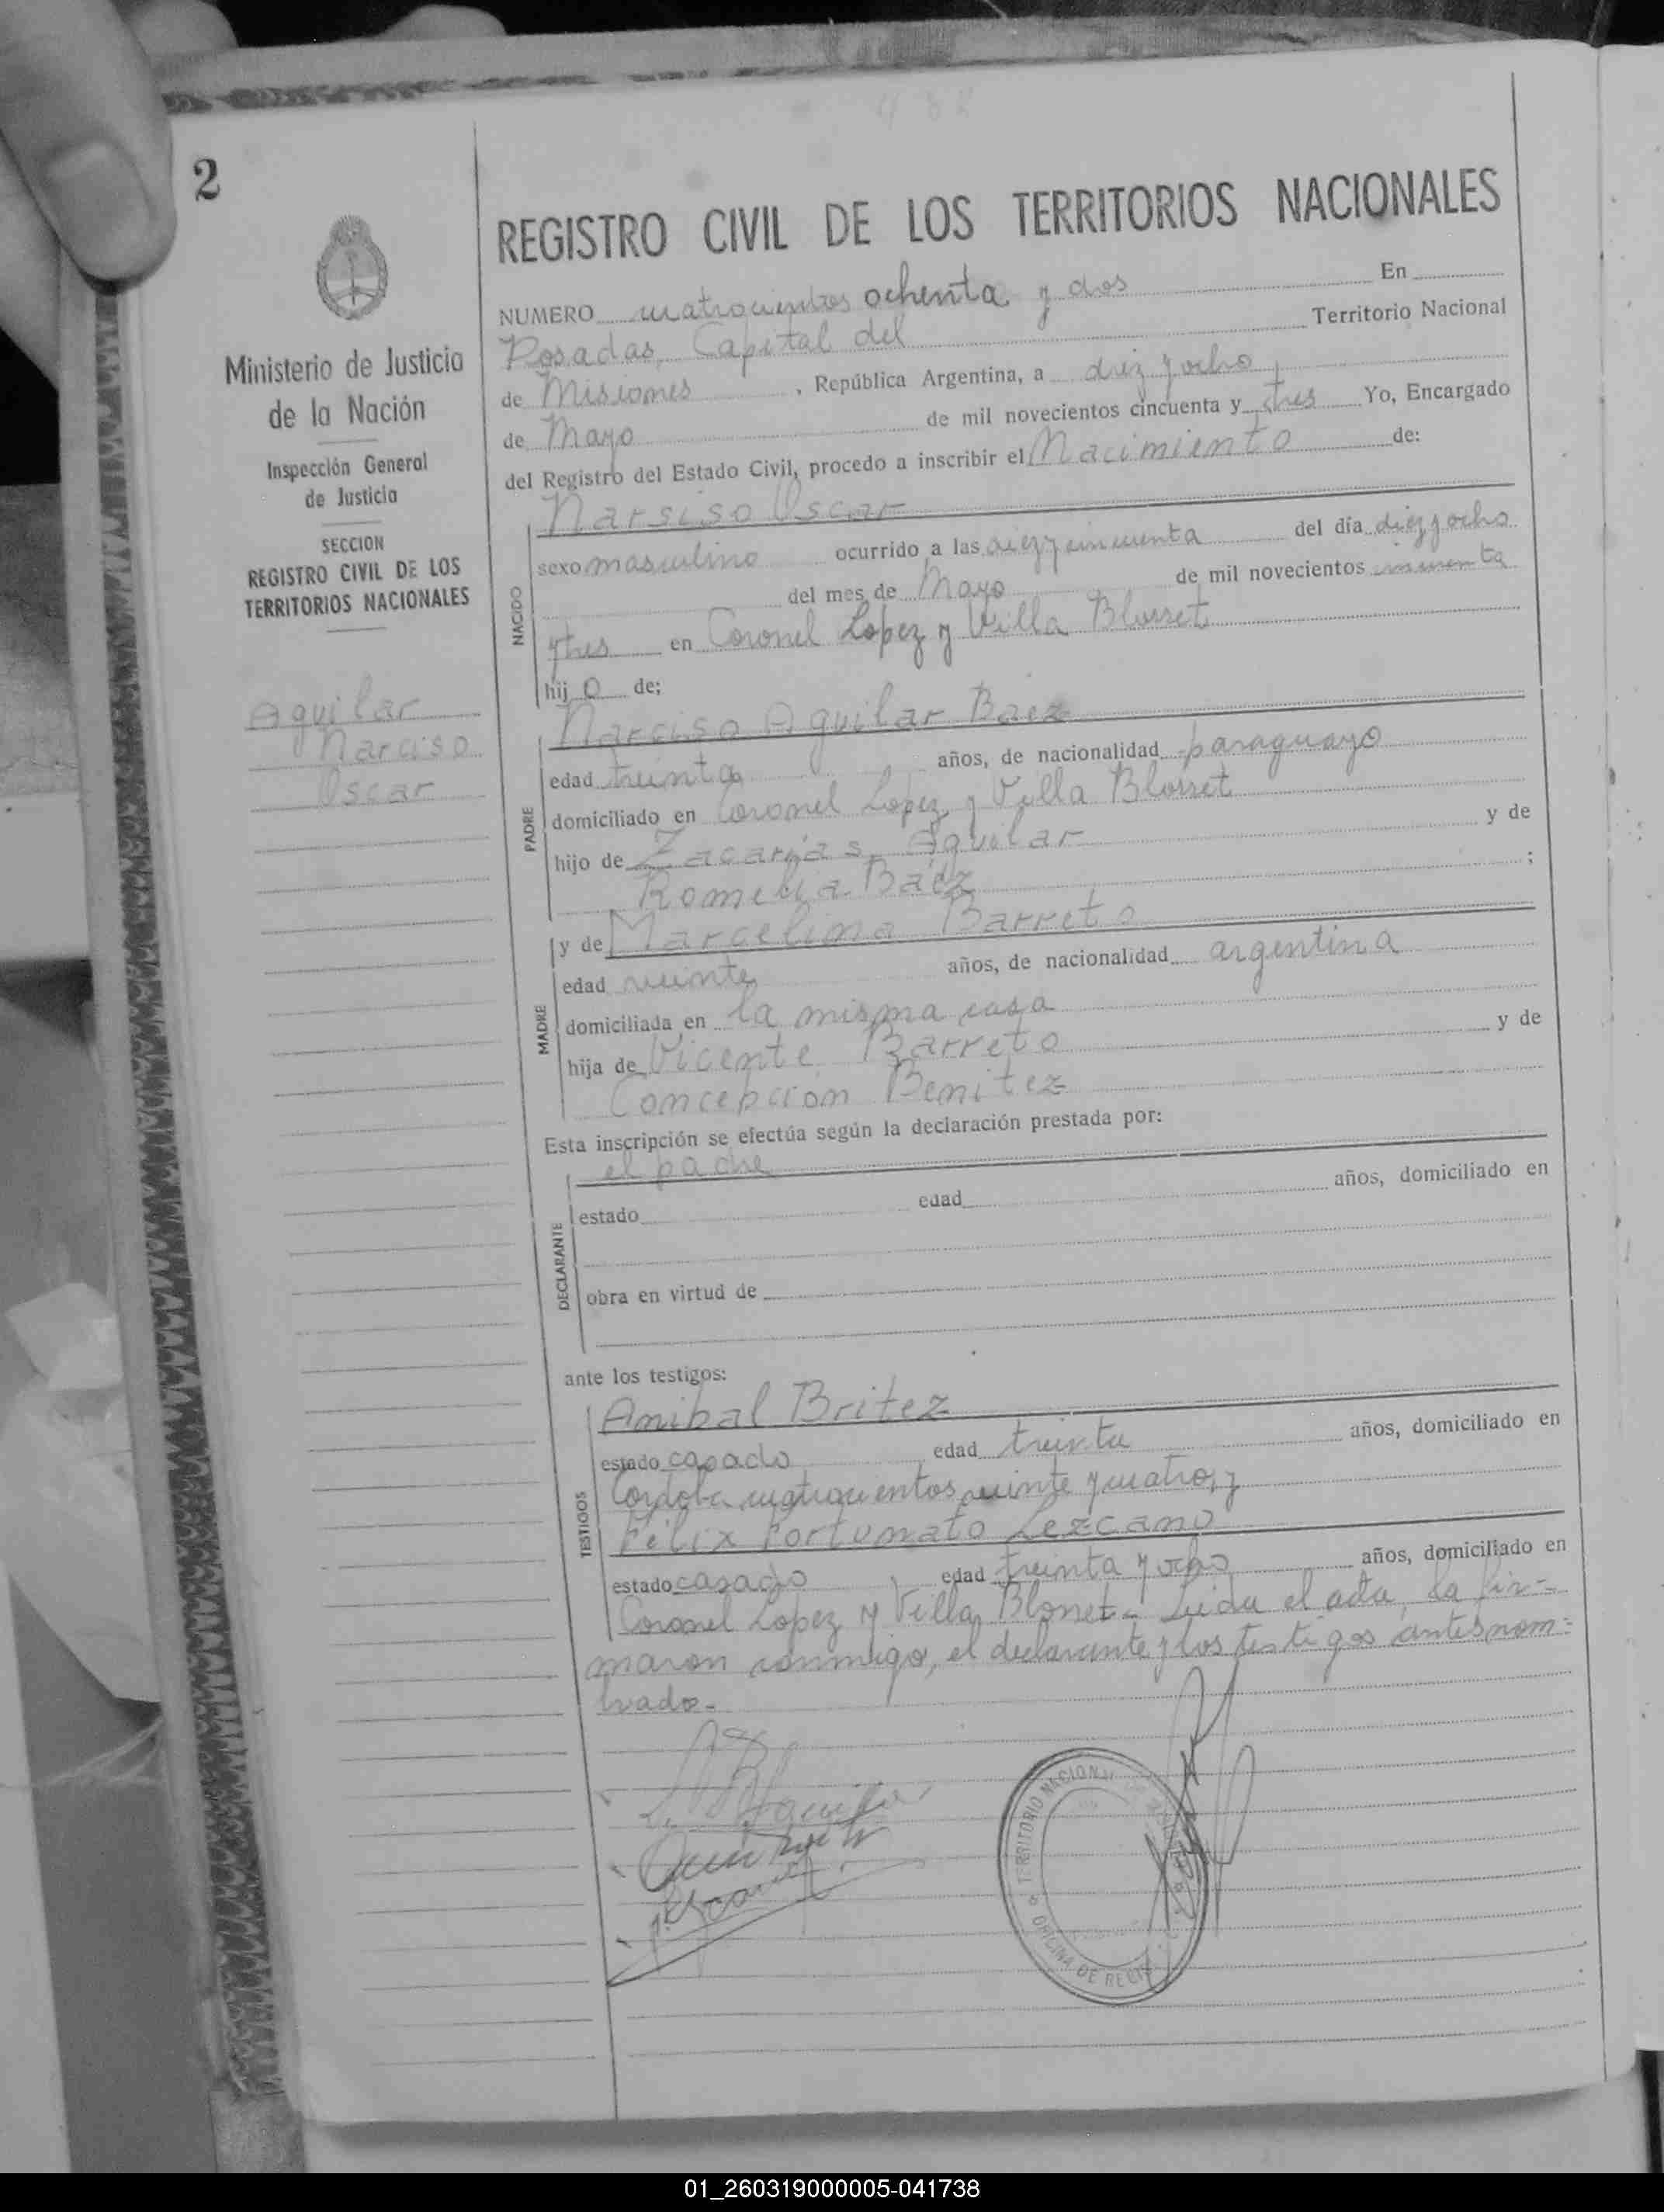 482
2
REGISTRO CIVIL DE LOS TERRITORIOS NACIONALES
Ministerio de Justicia
de la Nación
Inspección General
de Justicia
SECCION
REGISTRO CIVIL DE LOS
TERRITORIOS NACIONALES
Aguilar
Narciso
Oscar
NUMERO cuatrocientos ochenta y dos En
Posadas, Capital del Territorio Nacional
de Misiones, República Argentina, a diez y ocho
de Mayo de mil novecientos cincuenta y tres Yo, Encargado
del Registro del Estado Civil, procedo a inscribir el Nacimiento de:
NACIDO
Narsiso Oscar
sexo masculino ocurrido a las diez y cincuenta del día diez y ocho
del mes de Mayo de mil novecientos cincuenta
y tres en Coronel Lopez y Villa Blosset
hijo de;
PADRE
Narciso Aguilar Baez
edad treinta años, de nacionalidad paraguayo
domiciliado en Coronel Lopez y Villa Blosset
hijo de Zacarias Aguilar y de
Romelia Báez ;
MADRE
y de Marcelina Barreto
edad veinte años, de nacionalidad argentina
domiciliada en la misma casa
hija de Vicente Barreto y de
Concepción Benitez
Esta inscripción se efectúa según la declaración prestada por:
DECLARANTE
el padre
estado edad años, domiciliado en
obra en virtud de
ante los testigos:
TESTIGOS
Anibal Britez
estado casado edad treinta años, domiciliado en
Cordoba cuatrocientos veinte y cuatro, y
Félix Fortunato Lezcano
estado casado edad treinta y ocho años, domiciliado en
Coronel Lopez y Villa Blonet- Leida el acta, la fir-
maron conmigo, el declarante y los testigos antes nom=
brado-
TERRITORIO NACIONAL
OFICINA DE
01_260319000005-041738